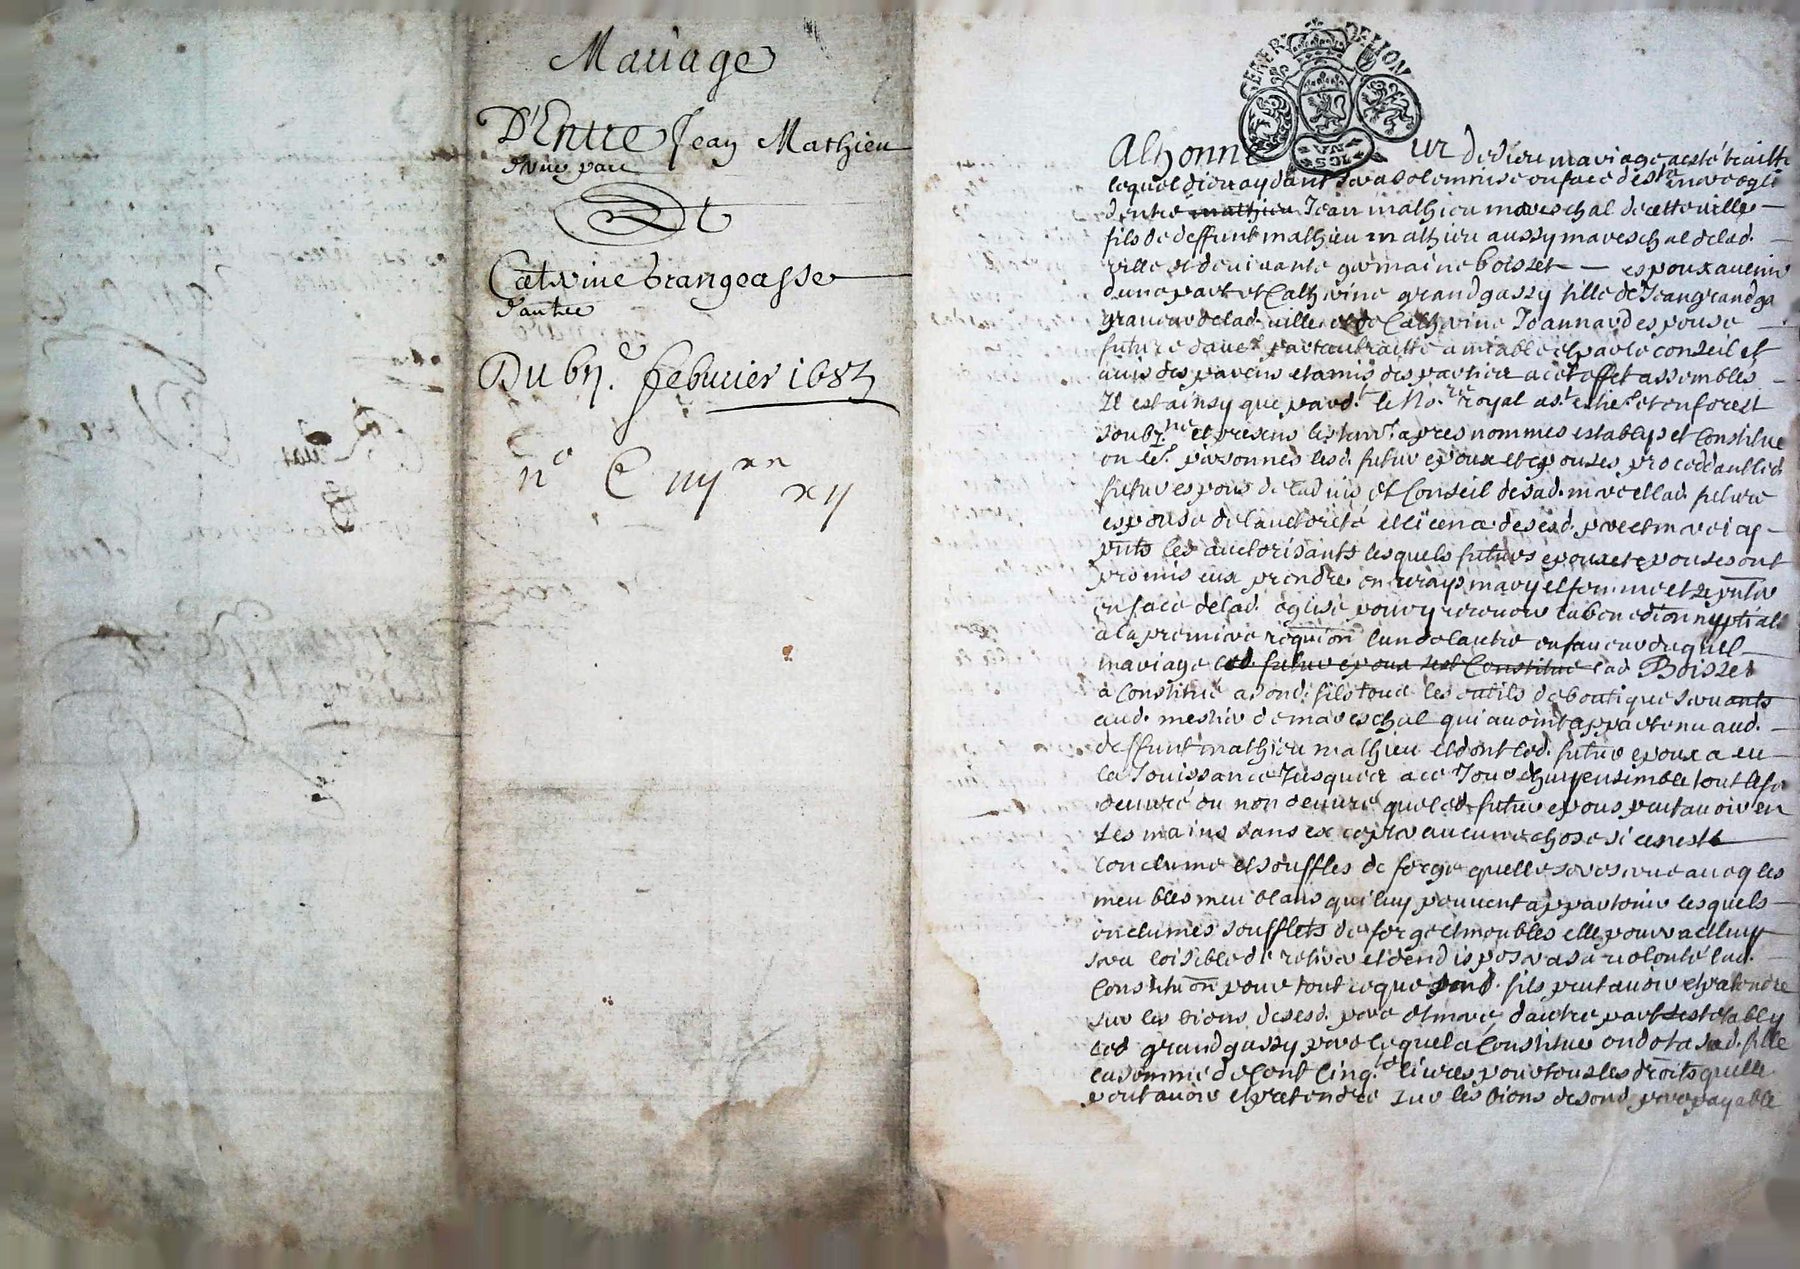 Mariage
D'Entre Jean Mathieu
d'une part
Et
Catherine Grangeasse
d'autre
Du 6 febvrier 168
n° C iiij xx
xij
GENER DE LION
UN SOL
A Lhonneur de dieu mariage a esté traitté
lequel dieu aydant sera solemnisé en face de ste mere egli
dentre mathieu Jean mathieu mareschal de cette ville
fils de deffunt mathieu mathieu aussy mareschal de lad.
ville et de vivante germaine boisset espoux avenir
dune part et Catherine grandgassy fille de Jean grandga
graveur de lad. ville et de Catherine Joannard espouse
future dautre part traitté amiable et par le conseil et
avis des parens et amis des parties a cet effet assembles
Il est ainsy que pard. le No.re royal et en forest
soubz.né et presens les apres nommes establys et constitue
en le. personnes lesd. futur epoux et epouses procedant led
futur espous de lad vis et conseil de sad. mere et lad. future
espouse de lauctorité et licence de sesd. pere et mere icy
pnts les auctorisants lesquels futurs epoux et epouse sont
promis eux prendre en vrays mary et femme et se pnter
en face de lad. eglise pour y recevoir la benediōn nuptiale
a la premiere requiōn lun de lautre en faveur duquel
mariage led. futur epoux sest constitué lad Boisset
a constitué a sond. fils tous les outils de boutique servants
aud. mestier de mareschal qui avoint appartenu aud.
deffunt mathieu mathieu et dont led. futur epoux a eu
la Jouissance Jusques a ce Jourdhuy ensemble tout le fer
oeuvré ou non oeuvré que led. futur epoux peut avoir en
ses mains sans excepter aucune chose si ce nest
lenclume et souffles de forge quelle se reserve avec les
meubles meublans qui luy peuvent appartenir lesquels
enclumes soufflets de forge et meubles elle pourra et luy
sera loisible de retirer et den disposer a sa volonté lad.
Constituōn pour tout ce que sond. fils peut avoir et pretendre
sur les biens de sesd. pere et mere dautre part sest estably
led grandgassy pere lequel a constitué en dot a sad. fille
la somme de cent cinq.te livres pour tous les droits quelle
peut avoir et pretendre sur les biens de sond. pere payable